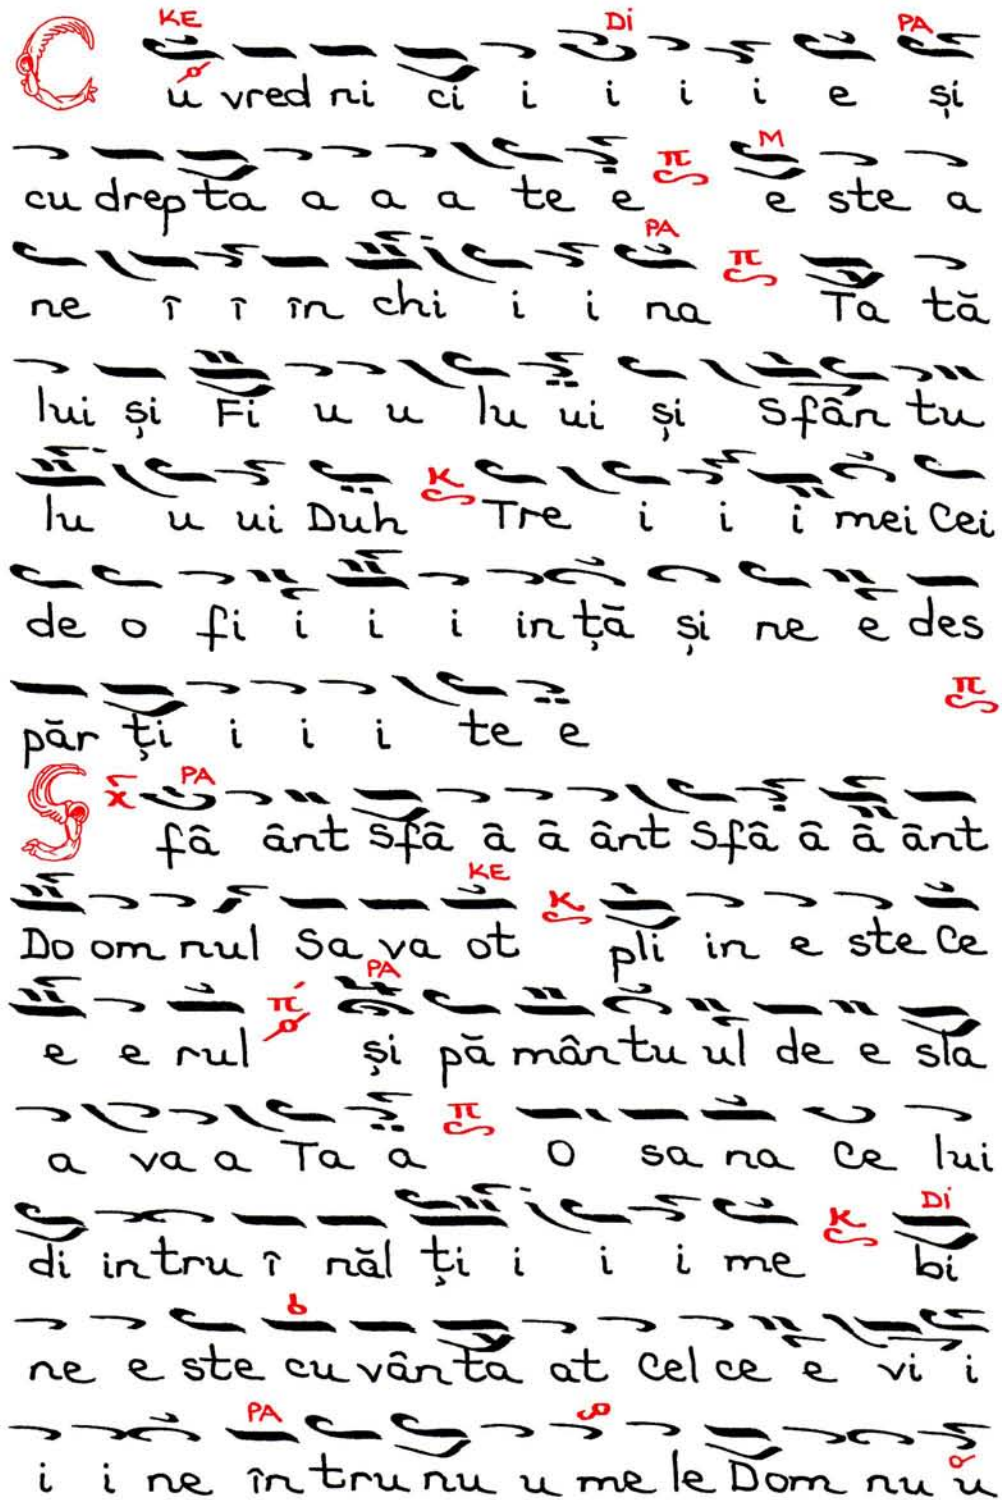 KE DI PA
C u vred ni ci i i i i e și
cu drep ta a a a te e π M e ste a
ne î î în chi i i na PA π Ta tă
lui și Fi u u lu ui și Sfân tu
lu u ui Duh K Tre i i i mei Cei
de o fi i i i in ță și ne e des
păr ți i i i te e π
S PA fâ ânt Sfâ â â ânt Sfâ â â ânt
Do om nul Sa va ot KE K pli in e ste Ce
e e rul π PA și pă mân tu ul de e sla
a va a Ta a π O sa na Ce lui
di in tru î năl ți i i i me K DI bi
ne e ste cu vân ta at Cel ce e vi i
i i ne PA în tru nu u me le Dom nu u